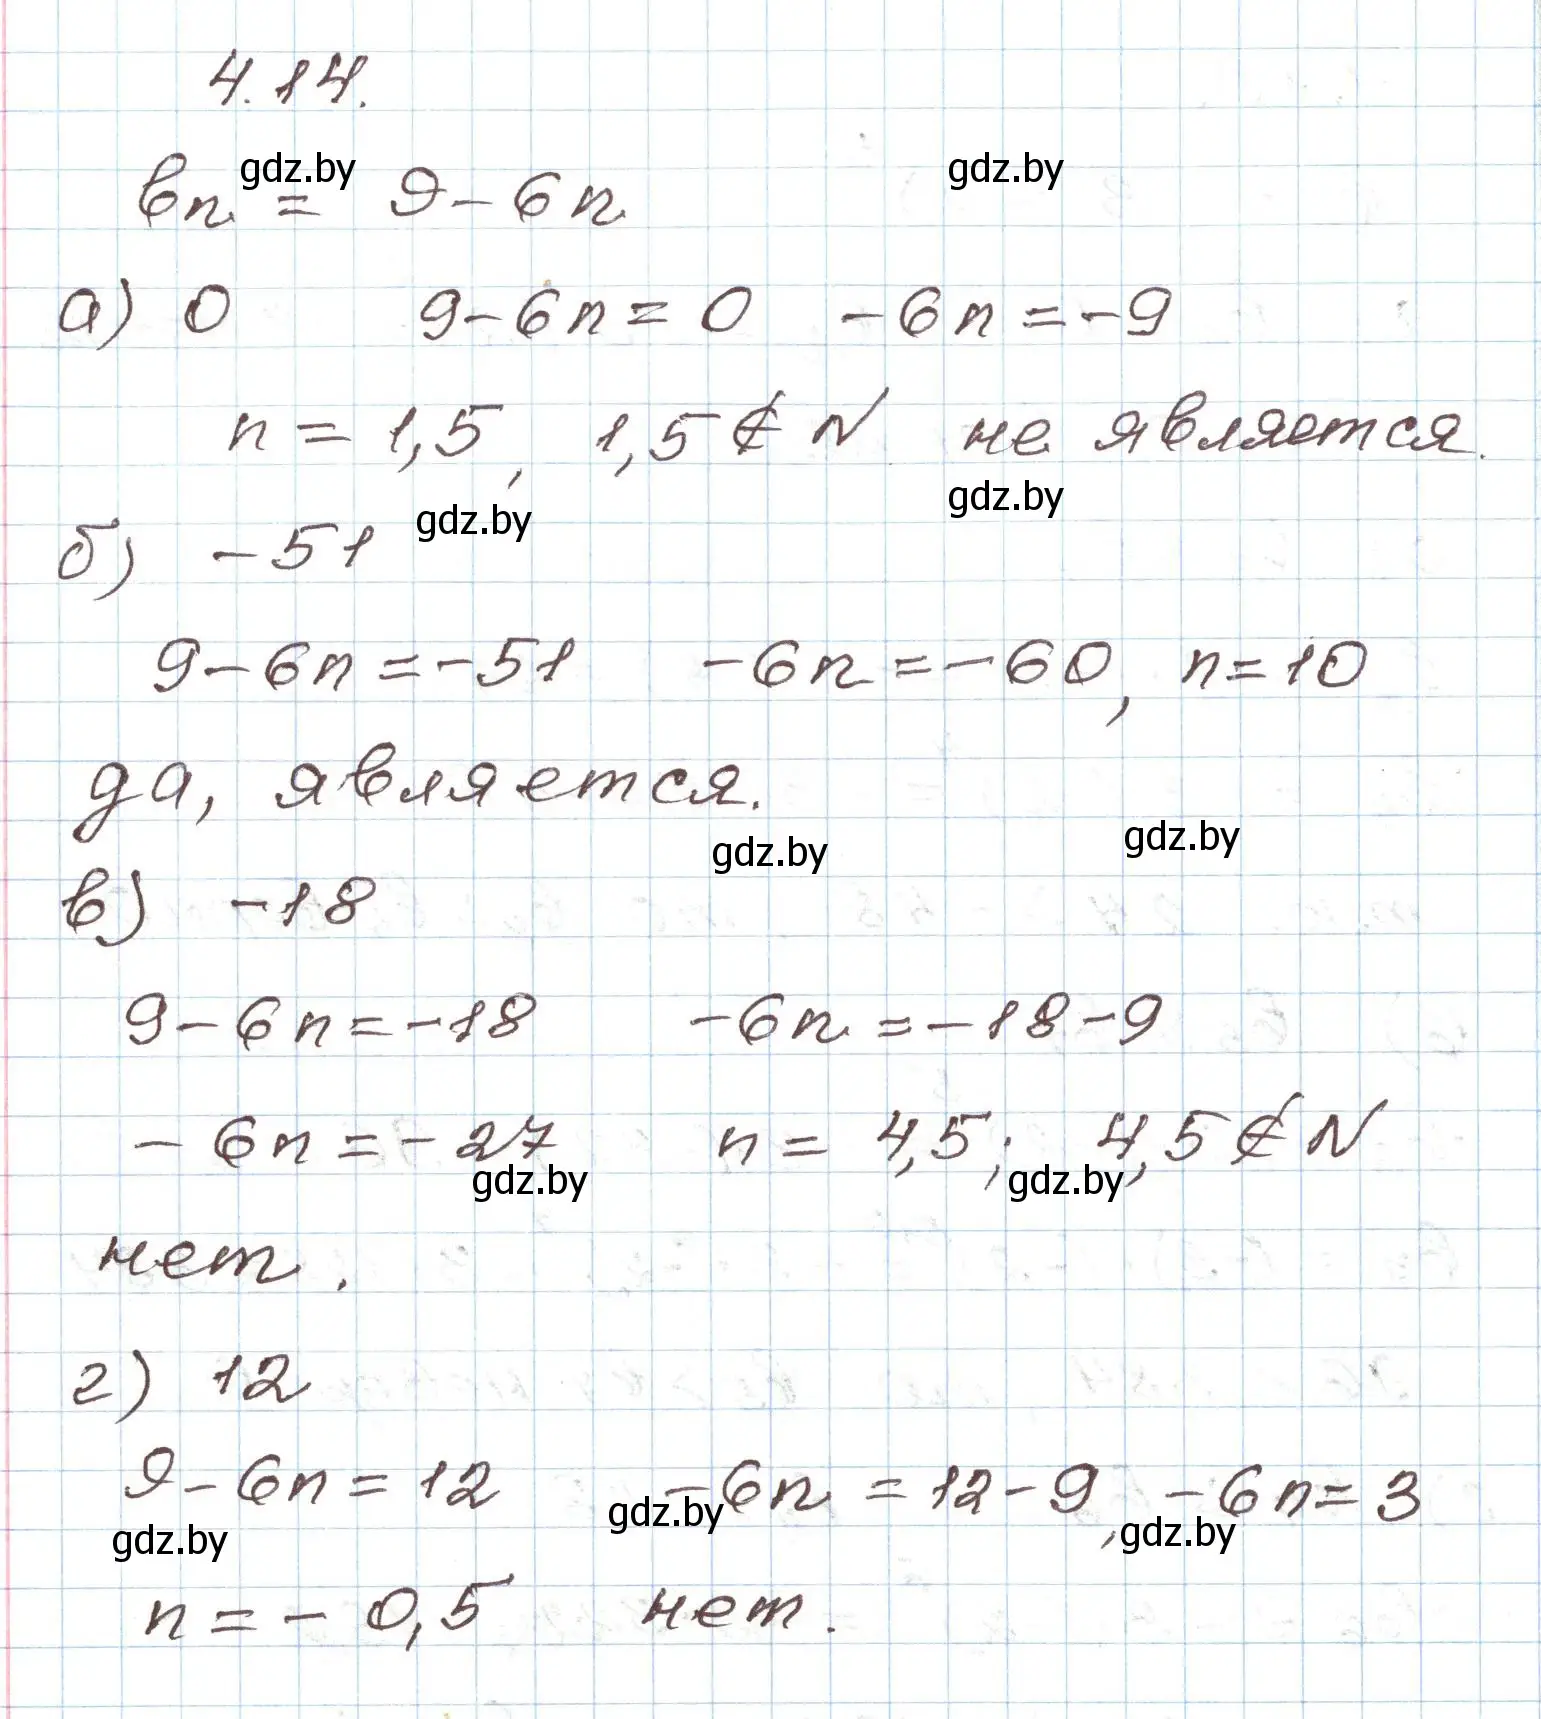 4.14.
bn = 9-6n
gdz.by gdz.by
а) 0 9-6n=0 -6n=-9
n=1,5, 1,5∉N не является.
gdz.by gdz.by
б) -51
9-6n=-51 -6n=-60, n=10
да, является.
gdz.by gdz.by
в) -18
9-6n=-18 -6n=-18-9
-6n=-27 n=4,5; 4,5∉N
gdz.by gdz.by
нет.
г) 12
9-6n=12 -6n=12-9, -6n=3
gdz.by gdz.by gdz.by
n=-0,5 нет.